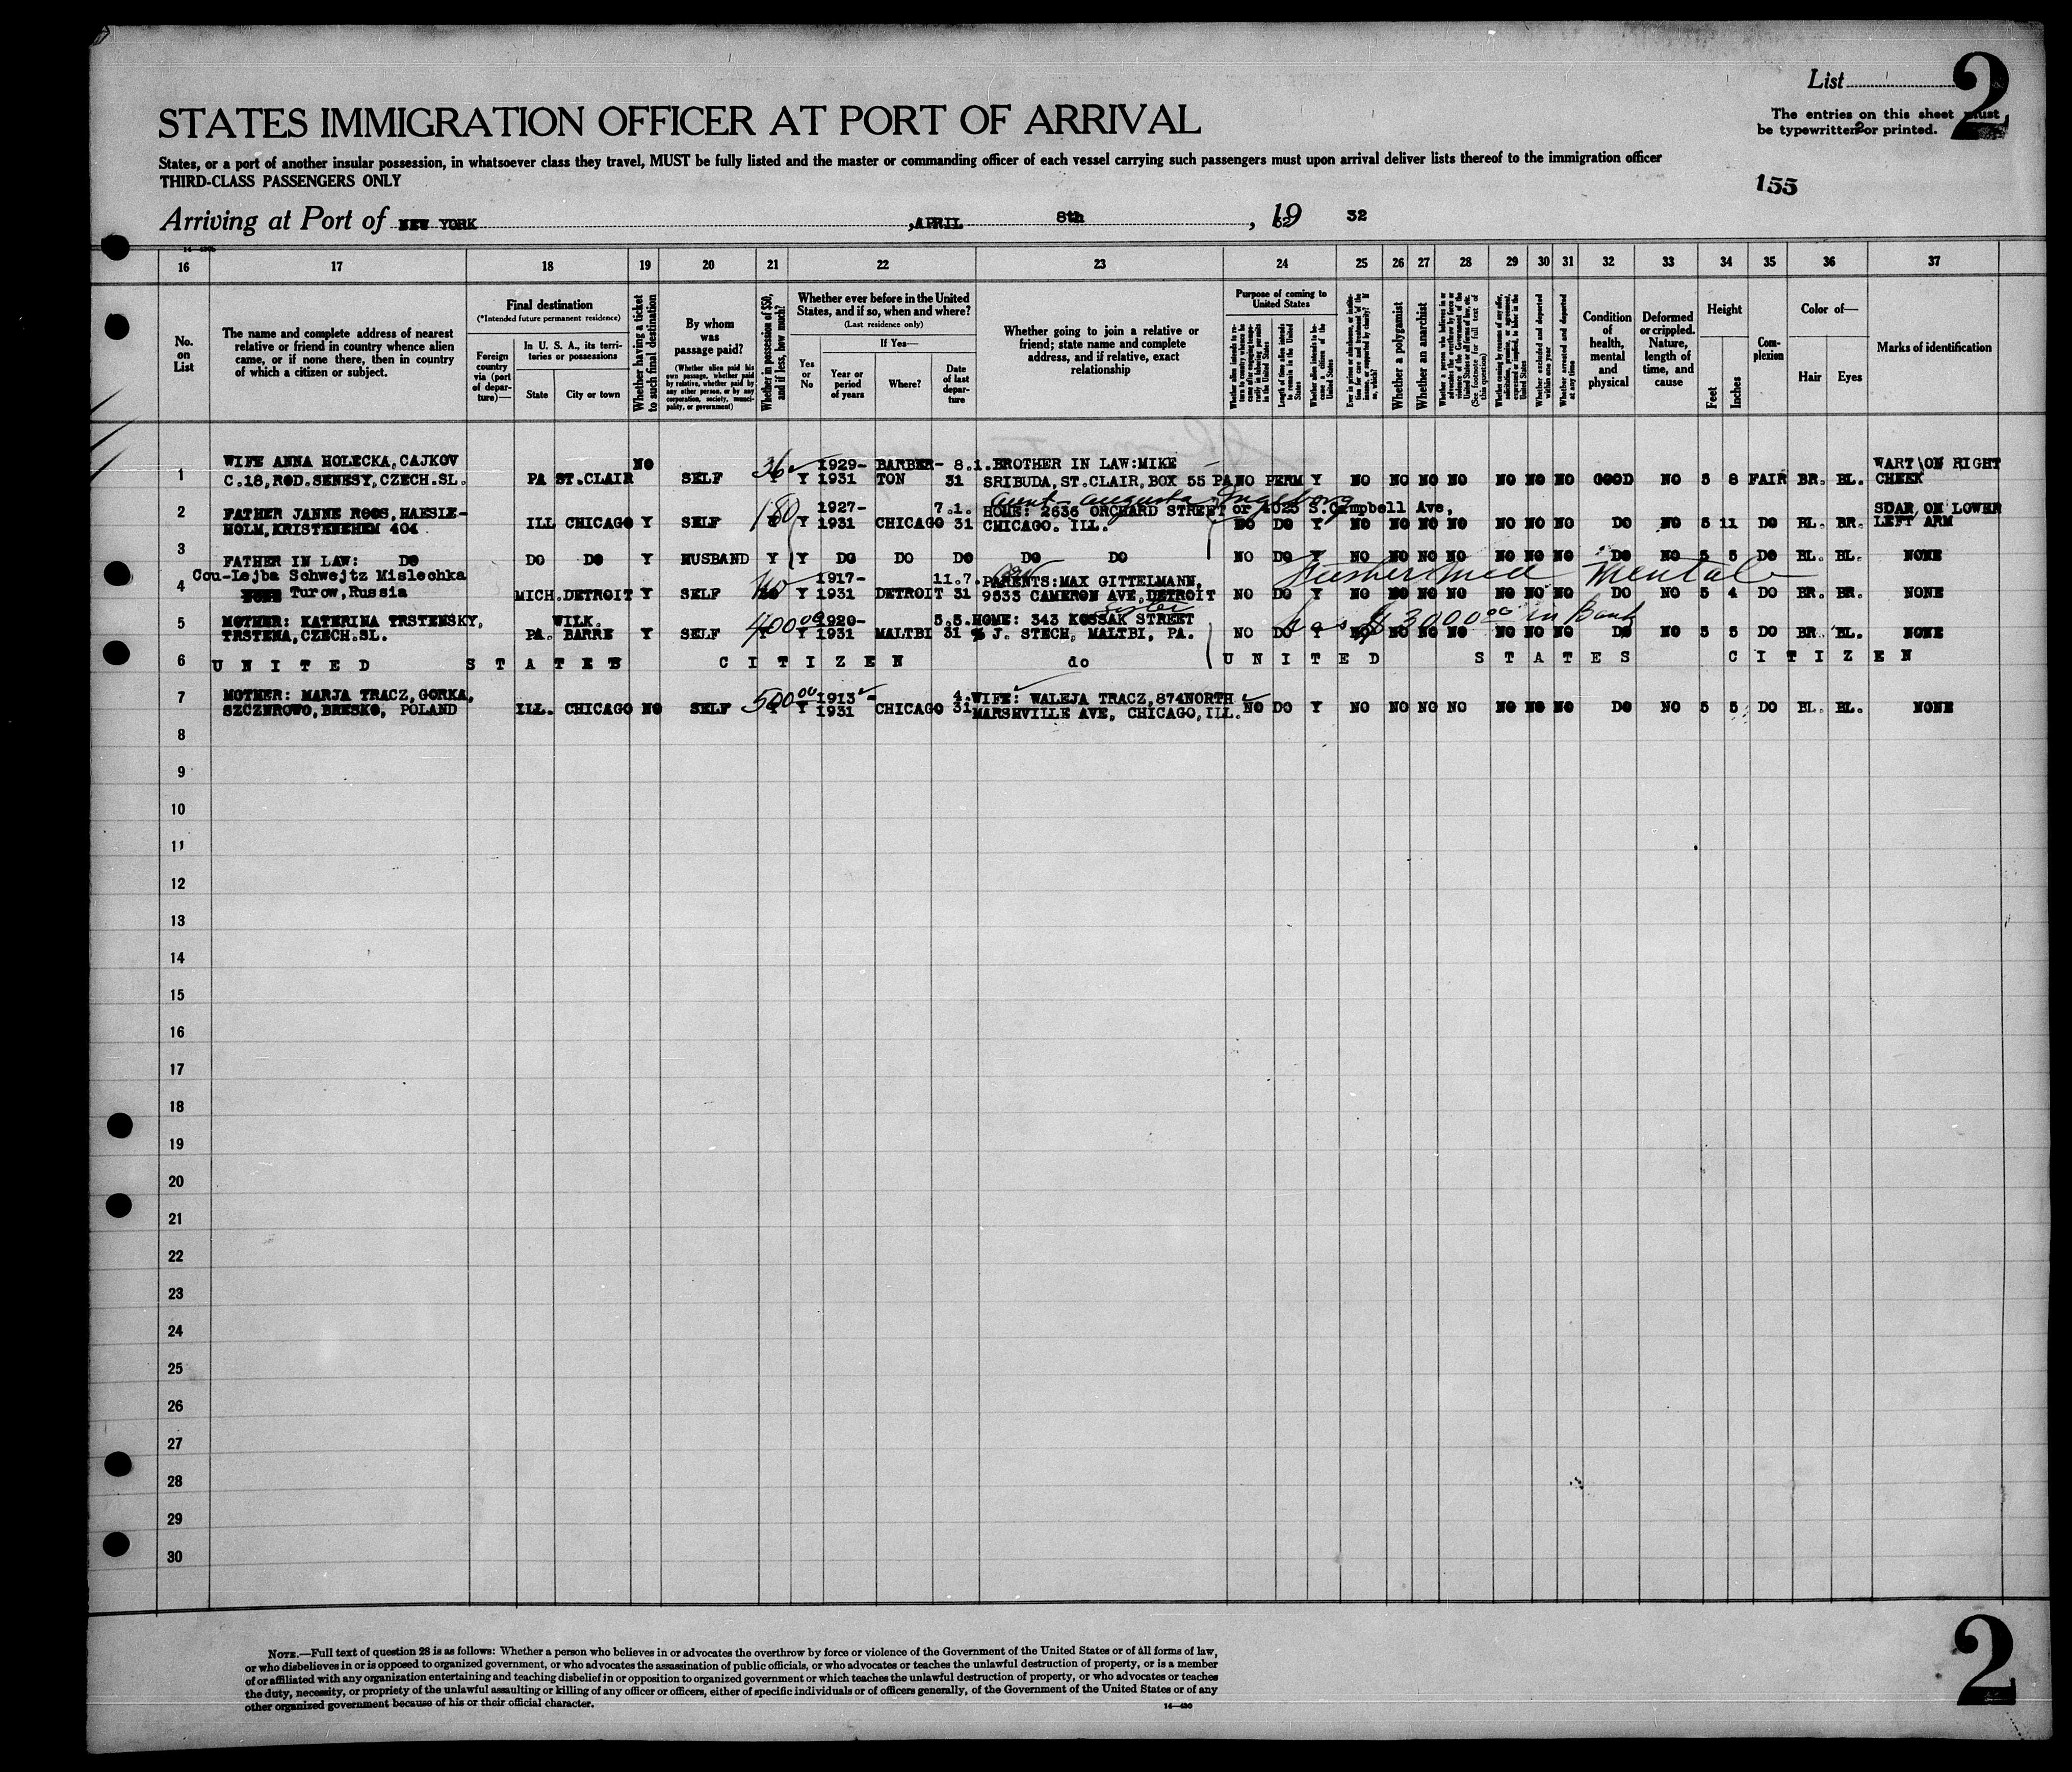 List 2
STATES IMMIGRATION OFFICER AT PORT OF ARRIVAL
The entries on this sheet must
be typewritten or printed.
States, or a port of another insular possession, in whatsoever class they travel, MUST be fully listed and the master or commanding officer of each vessel carrying such passengers must upon arrival deliver lists thereof to the immigration officer
THIRD-CLASS PASSENGERS ONLY
155
Arriving at Port of NEW YORK , APRIL 8th , 19 32
16 17 18 19 20 21 22 23 24 25 26 27 28 29 30 31 32 33 34 35 36 37
No. on List
The name and complete address of nearest relative or friend in country whence alien came, or if none there, then in country of which a citizen or subject.
Final destination
(*Intended future permanent residence)
Foreign country via (port of departure)—
In U. S. A., its territories or possessions
State City or town
Whether having a ticket to such final destination
By whom was passage paid?
(Whether alien paid his own passage, whether paid by relative, whether paid by any other person, or by any corporation, society, municipality, or government)
Whether in possession of $50, and if less, how much?
Whether ever before in the United States, and if so, when and where?
(Last residence only)
Yes or No
If Yes—
Year or period of years
Where?
Date of last departure
Whether going to join a relative or friend; state name and complete address, and if relative, exact relationship
Purpose of coming to United States
Length of time alien intends to remain in the United States
Whether alien intends to become a citizen of the United States
Whether a polygamist
Whether an anarchist
Whether excluded and deported within one year
Whether arrested and deported at any time
Condition of health, mental and physical
Deformed or crippled. Nature, length of time, and cause
Height
Feet Inches
Complexion
Color of—
Hair Eyes
Marks of identification
1 WIFE ANNA HOLECKA, CAJKOV NO 36 1929- BARBER- 8.1. BROTHER IN LAW: MIKE WART ON RIGHT
C.18, ROD. SENESY, CZECH.SL. PA ST.CLAIR SELF Y Y 1931 TON 31 SRIBUDA, ST.CLAIR, BOX 55 PA NO PERM Y NO NO NO NO NO NO NO GOOD NO 5 8 FAIR BR. BL. CHEEK
Aunt Augusta Ingeborg
2 FATHER JANNE ROOS, HAESLE- 180 1927- 7.1. HOME: 2636 ORCHARD STREET or 4025 S.Campbell Ave, SDAR ON LOWER
HOLM, KRISTENEHEM 404 ILL CHICAGO Y SELF Y 1931 CHICAGO 31 CHICAGO. ILL. NO DO Y NO NO NO NO NO NO NO DO NO 5 11 DO BL. BR. LEFT ARM
3 FATHER IN LAW: DO DO DO Y HUSBAND Y Y DO DO DO DO DO NO DO Y NO NO NO NO NO NO NO DO NO 5 5 DO BL. BL. NONE
4 Cou-Lejba Schwejtz Mislechka 40 1917- 11.7. PARENTS: MAX GITTELMANN, mental
Turow, Russia MICH. DETROIT Y SELF Y 1931 DETROIT 31 9533 CAMERON AVE, DETROIT NO DO Y NO NO NO NO NO NO NO DO NO 5 4 DO BR. BR. NONE
sister has $3000.00 in Bank
5 MOTHER: KATERINA TRSTENSKY, WILK. 400.00 1920- 5.5. HOME: 343 KOSSAK STREET
TRSTENA, CZECH.SL. PA. BARRE Y SELF Y Y 1931 MALTBI 31 % J. STECH, MALTBI, PA. NO DO Y NO NO NO NO NO NO NO DO NO 5 5 DO BR. BL. NONE
6 UNITED STATES CITIZEN do UNITED STATES CITIZEN
7 MOTHER: MARJA TRACZ, GORKA, 500.00 1913- 4. WIFE: WALEJA TRACZ, 874 NORTH
SZCZNROWO, BRESKO, POLAND ILL. CHICAGO NO SELF Y Y 1931 CHICAGO 31 MARSHVILLE AVE, CHICAGO, ILL. NO DO Y NO NO NO NO NO NO NO DO NO 5 5 DO BL. BL. NONE
8
9
10
11
12
13
14
15
16
17
18
19
20
21
22
23
24
25
26
27
28
29
30
NOTE.—Full text of question 28 is as follows: Whether a person who believes in or advocates the overthrow by force or violence of the Government of the United States or of all forms of law,
or who disbelieves in or is opposed to organized government, or who advocates the assassination of public officials, or who advocates or teaches the unlawful destruction of property, or is a member
of or affiliated with any organization entertaining and teaching disbelief in or opposition to organized government or which teaches the unlawful destruction of property, or who advocates or teaches
the duty, necessity, or propriety of the unlawful assaulting or killing of any officer or officers, either of specific individuals or of officers generally, of the Government of the United States or of any
other organized government because of his or their official character.
14—430
2